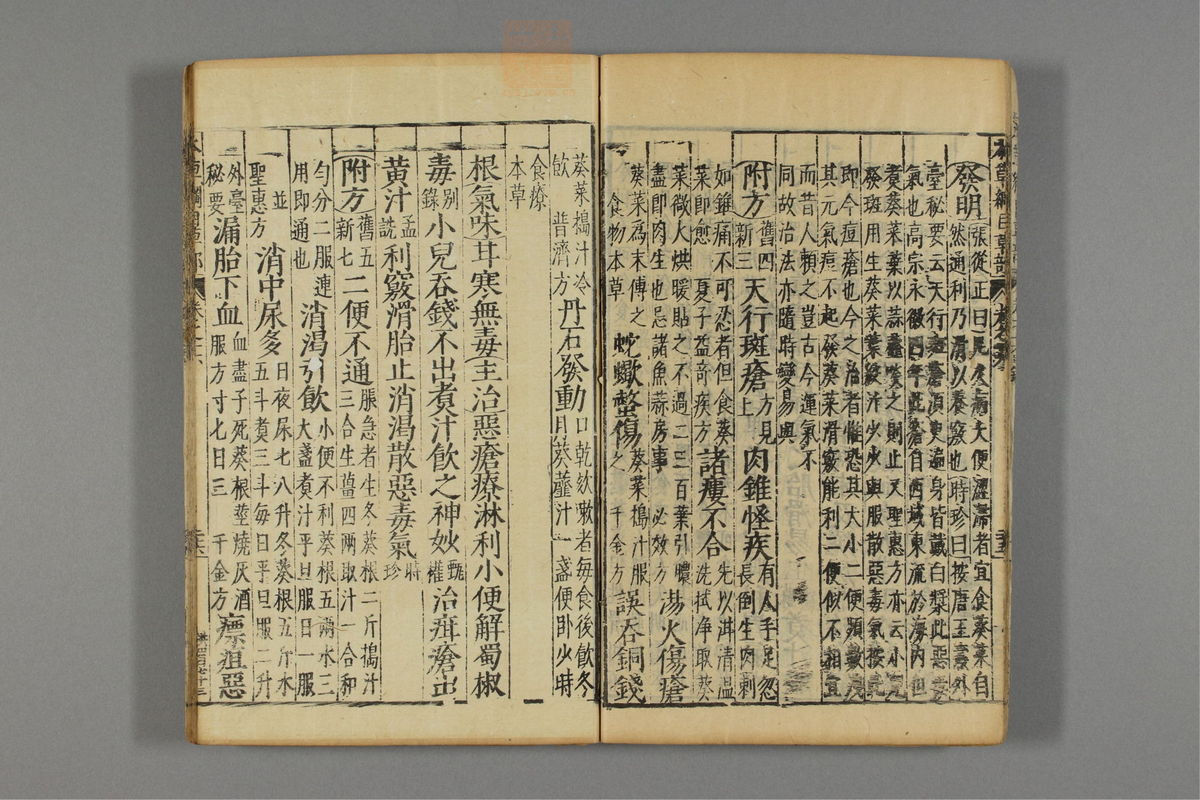 本草綱目草部
發明張從正曰凡久病大便澀滯者宜食葵菜自
然通利乃滑以養竅也時珍曰按唐王燾外
臺秘要云天行斑瘡須臾遍身皆戴白漿此惡毒
氣也高宗永徽四年此瘡自西域東流於海內但
煮葵菜葉以蒜虀啖之則止又聖惠方亦云小兒
發斑用生葵菜葉絞汁少少與服散惡毒氣按此
即今痘瘡也今之治者惟恐其大小二便頻數洩
其元氣痘不起發葵菜滑竅能利二便似不相宜
而昔人賴之豈古今運氣不
同故治法亦隨時變易與
附方舊四新三天行斑瘡方見上肉錐怪疾有人手足忽長倒生肉刺
如錐痛不可忍者但食葵菜即愈夏子益奇疾方諸瘻不合先以泔清溫洗拭淨取葵
菜微火烘暖貼之不過二三百葉引膿盡即肉生也忌諸魚蒜房事必效方湯火傷瘡
葵菜為末傅之食物本草蛇蠍螫傷葵菜搗汁服之千金方誤吞銅錢
葵菜搗汁冷飲普濟方丹石發動口乾欬嗽者每食後飲冬月葵虀汁一盞便臥少時
食療本草
根氣味甘寒無毒主治惡瘡療淋利小便解蜀椒
毒別錄小兒吞錢不出煮汁飲之神妙甄權治疳瘡出
黃汁孟詵利竅滑胎止消渴散惡毒氣時珍
附方舊五新七二便不通脹急者生冬葵根二斤搗汁三合生薑四兩取汁一合和
勻分二服連用即通也消渴引飲小便不利葵根五兩水三大盞煮汁平旦服日一服
並聖惠方消中尿多日夜尿七八升冬葵根五斤水五斗煮三斗每日平旦服二升
外臺秘要漏胎下血血盡子死葵根莖燒灰酒服方寸匕日三千金方瘭疽惡